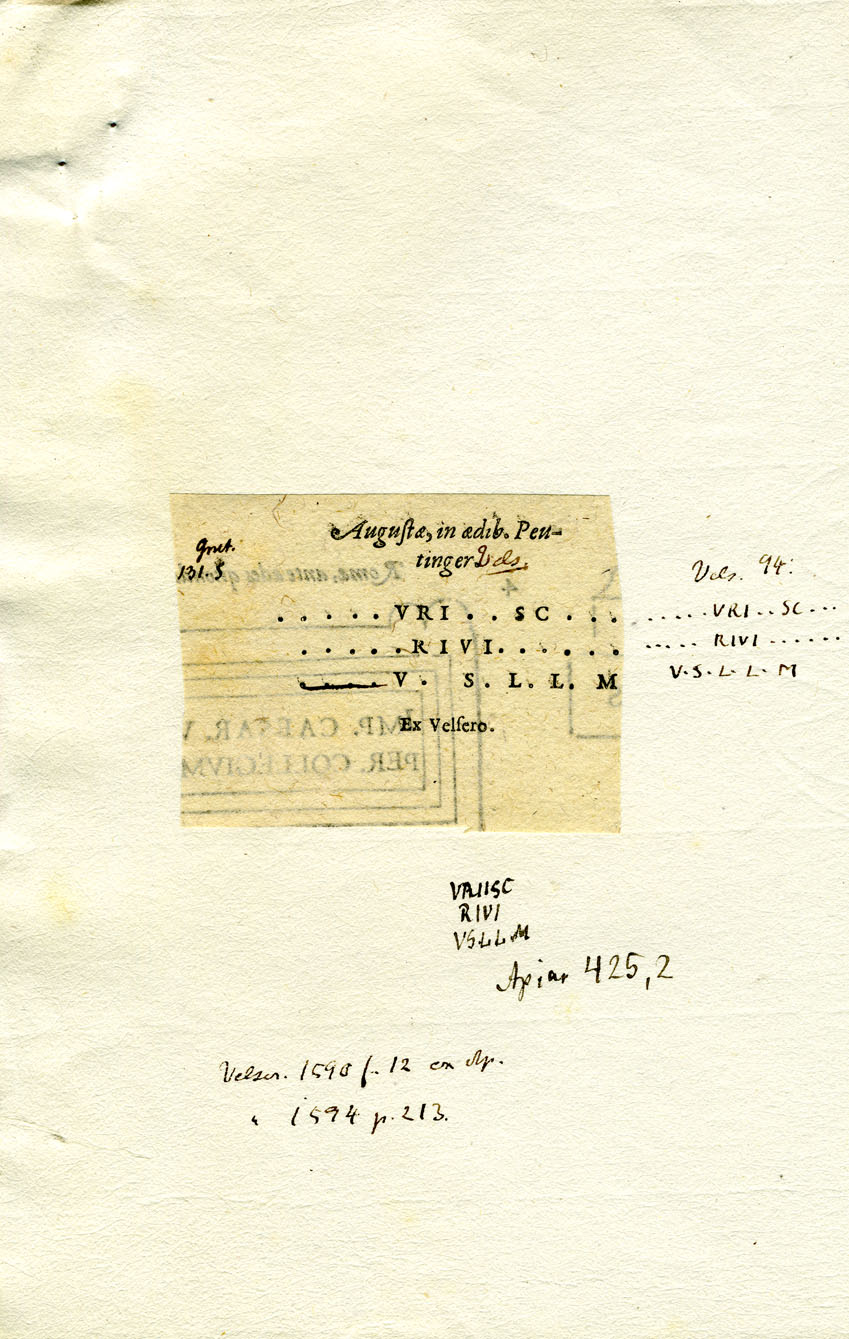 Grut.
131.5
Augustæ, in ædib. Peu-
tinger Vels.
. . . . . VRI . . SC . . .
. . . . . . RIVI . . . . . .
V. S. L. L. M
Ex Velsero.
Vels. 94.
. . . . . VRI . . SC . . .
. . . . . RIVI . . . . . .
V. S. L. L. M
VRIISC
RIVI
VSLLM
Apian 425,2
Velser. 1590 f. 12 ex Ap.
" 1594 p. 213.